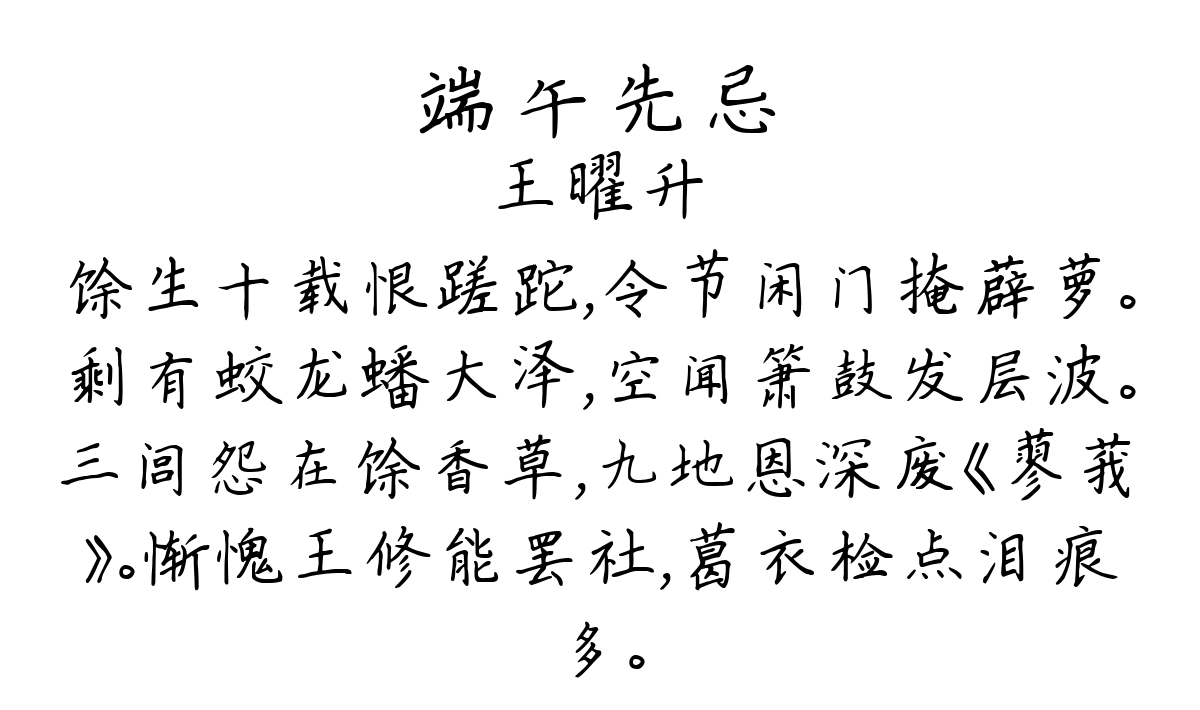 端午先忌
王曜升
馀生十载恨蹉跎,令节闲门掩薜萝。
剩有蛟龙蟠大泽,空闻箫鼓发层波。
三闾怨在馀香草,九地恩深废《蓼莪
》。惭愧王修能罢社,葛衣检点泪痕
多。